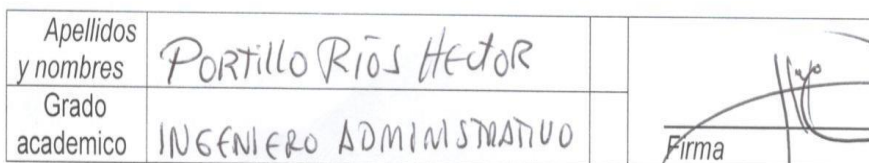 Apellidos
y nombres
PORTIllO RÍOS HECTOR
Grado
academico
INGENIERO ADMINISTRATIVO
Firma